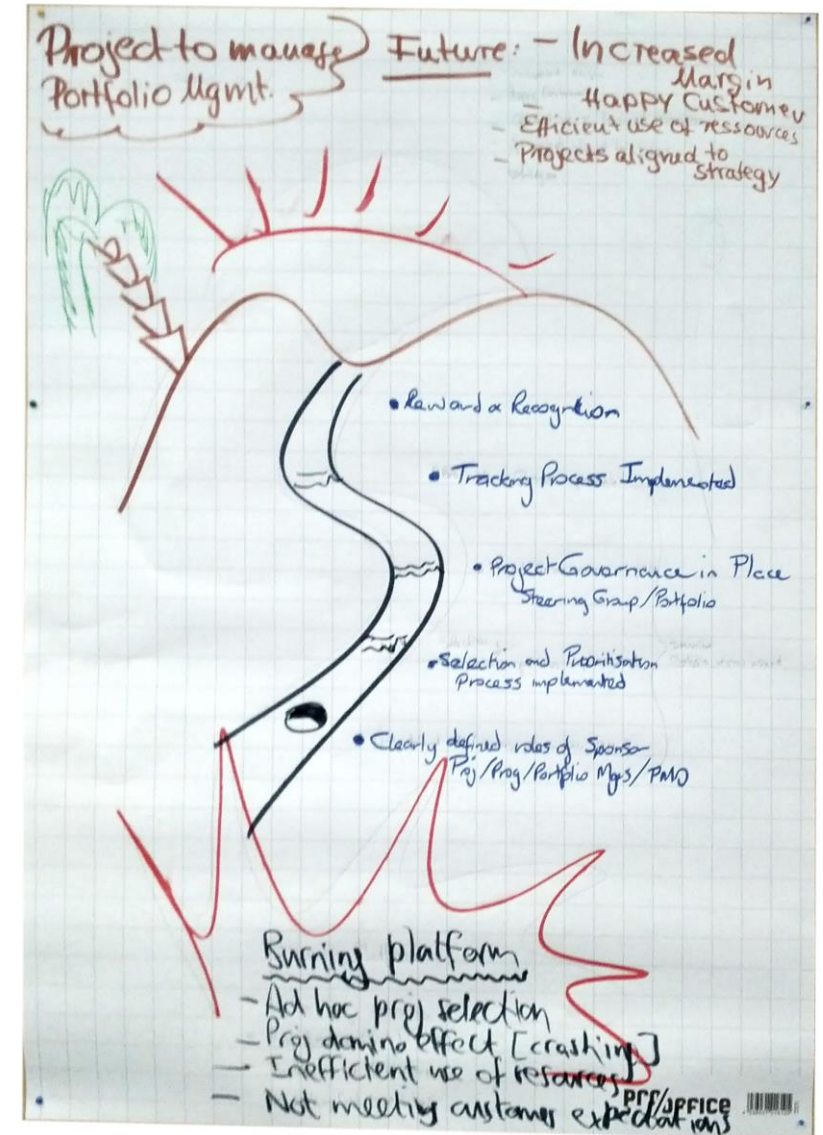 Project to manage
Portfolio Mgmt.
Future: - Increased
Margin
- Happy Customer
- Efficient use of ressources
- Projects aligned to
strategy
• Reward & Recognition
• Tracking Process Implemented
• Project Governance in Place
Steering Group/Portfolio
• Selection and Prioritisation
Process implemented
• Clearly defined roles of Sponsor
Proj/Prog/Portfolio Mgrs/PMO
Burning platform
- Ad hoc proj selection
- Proj domino effect [crashing]
- Inefficient use of resources
- Not meeting customer expectations